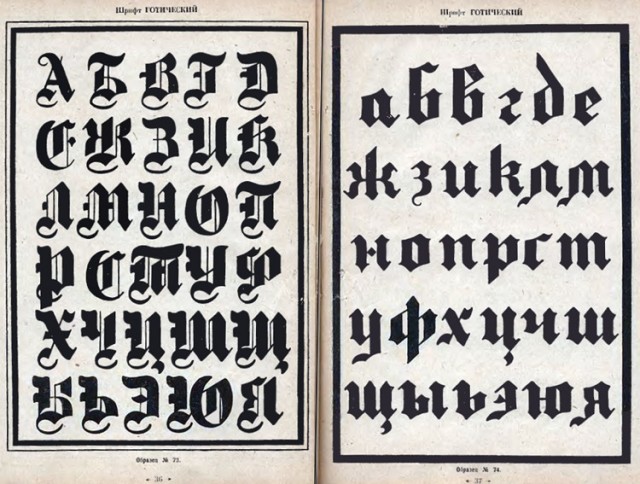 Шрифт ГОТИЧЕСКИЙ
А Б В Г Д
Е Ж З И К
Л М Н О П
Р С Т У Ф
Х Ч Ц Ш Щ
Ь Ъ Э Ю Я
Образец № 73.
36
Шрифт ГОТИЧЕСКИЙ
а б в г д е
ж з и к л м
н о п р с т
у ф х ц ч ш
щ ы ь э ю я
Образец № 74.
37